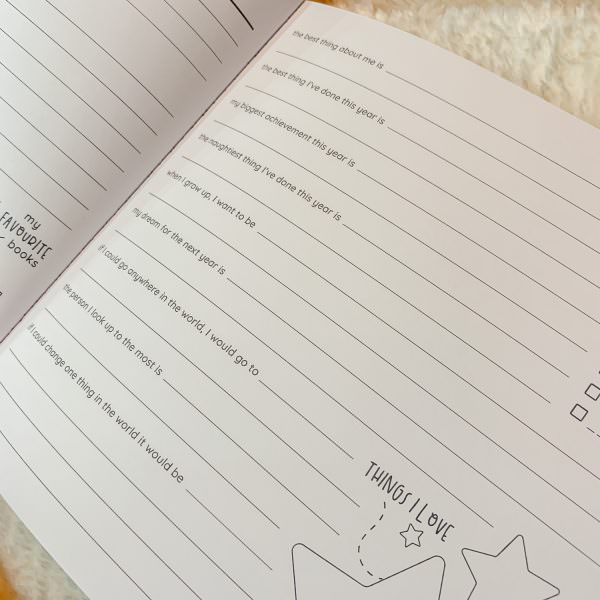 my
FAVOURITE
books
the best thing about me is
the best thing I've done this year is
my biggest achievement this year is
the naughtiest thing I've done this year is
when I grow up, I want to be
my dream for the next year is
if I could go anywhere in the world, I would go to
the person I look up to the most is
if I could change one thing in the world it would be
THINGS I LOVE